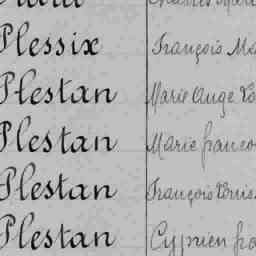 Plessix François Ma
Plestan Marie Ange Lo
Plestan Marie franco
Plestan François Louis
Plestan Cyprien fra